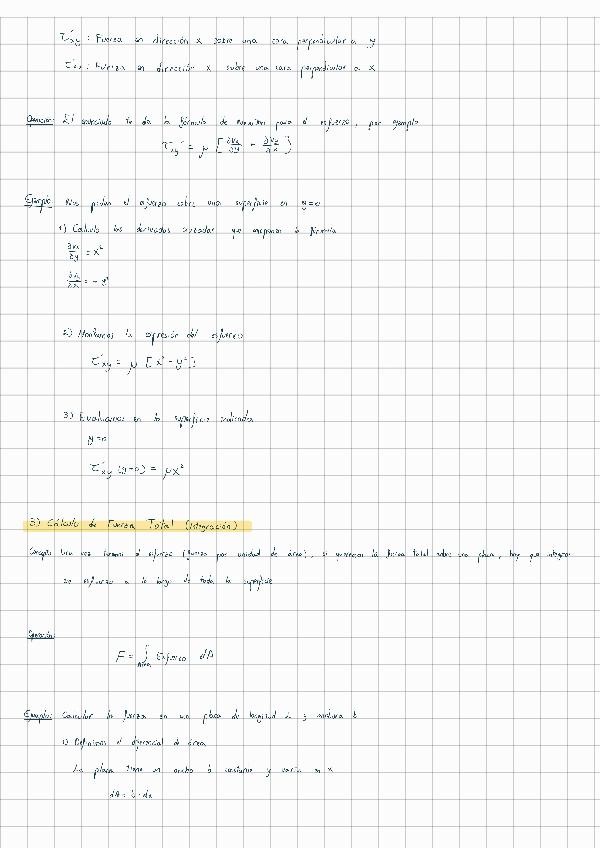 τxy : Fuerza en dirección x sobre una cara perpendicular a y
τxx : Fuerza en dirección x sobre una cara perpendicular a x
Operación: El enunciado te da la fórmula de para el esfuerzo, por ejemplo
τxy = μ [ ∂Vx/∂y + ∂Vy/∂x ]
Ejemplo: Nos piden el esfuerzo sobre una superficie en y=0
1) Calculo las derivadas cruzadas que la fórmula
∂Vx/∂y = x²
= - y²
2) Montamos la expresión del esfuerzo
τxy = μ [x² - y²]
3) Evaluamos en la superficie indicada
y=0
τxy (y=0) = μx²
3) Cálculo de Fuerza Total (Integración)
Concepto: Una vez tenemos el esfuerzo (fuerza por unidad de área), si queremos la fuerza total sobre una placa, hay que integrar
ese esfuerzo a lo largo de toda la superficie
Operación:
F = ∫Área Esfuerzo dA
Ejemplo: Calcular la fuerza en una placa de longitud L y anchura b
1) Definimos el diferencial de área
La placa tiene un ancho b constante y varía en x
dA = b · dx